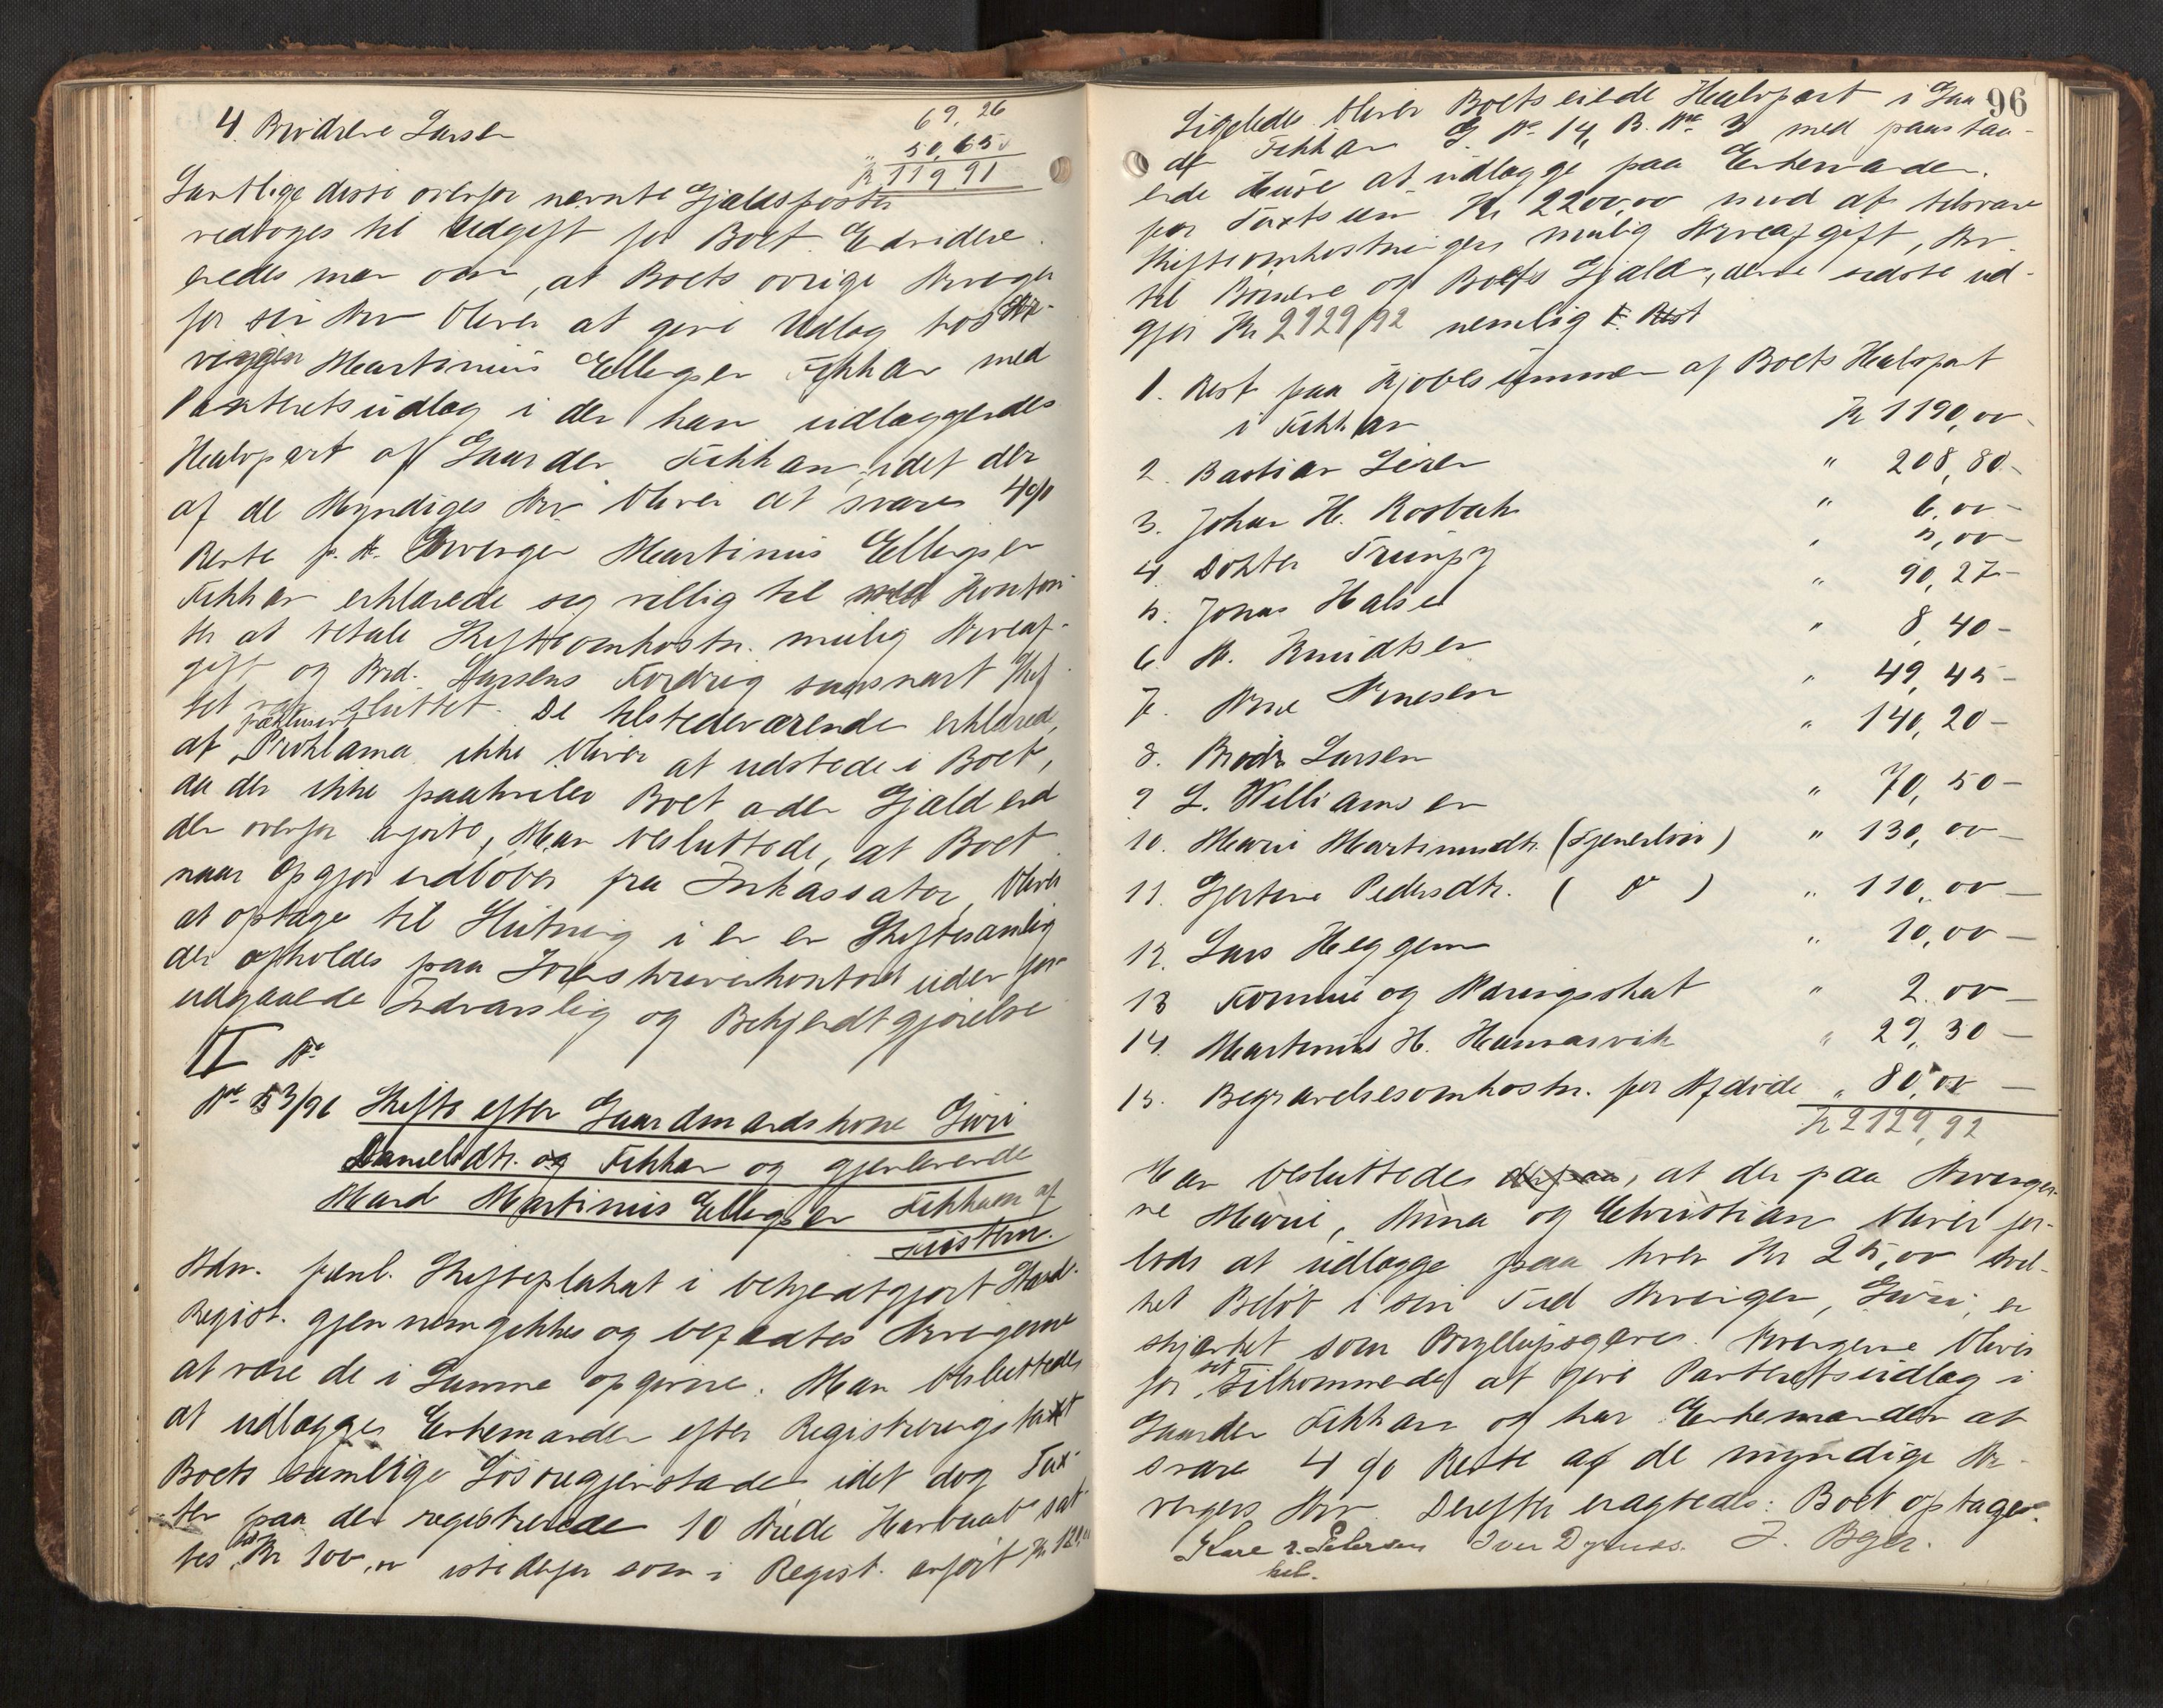 69,26
4. Brødrene Larsen " 50,65
Kr 119,91
Samtlige disse ovenfor nævnte Gjældsposter
vedtoges til Udgift for Boet. Endvidere
enedes man om, at Boets øvrige Arvinger
for sin Arv bliver at give Udlæg hos Ar-
vingen Martinius Ellingsen Fikhan med
Panteretsudlæg i den ham udlæggendes
Halvpart af Gaarden Fikhan, idet der
af de Myndiges Arv bliver at svare 4 %
Rente p. A. Arvingen Martinius Ellingsen
Fikhan erklærede sig villig til med Kontan-
ter at betale Skifteomkostn. mulig Arveaf-
gift og Brd. Larsens Fordring saasnart Skif-
tet var sluttet. De tilstedeværende erklærede,
at præklusivt Proklama ikke bliver at udstede i Boet,
da der ikke paahviler Boet anden Gjæld end
den ovenfor anførte, Man besluttede, at Boet
naar Opgjør indløber fra Inkassator, bliver
at optage til Slutning i en en Skiftesamling
der afholdes paa Sorenskriverkontoret uden for-
udgaaende Indvarsling og Bekjendtgjørelse
II No
No 53/96 Skifte efter Gaardmandskone Guri
Danielsdtr. og Fikhan og gjenlevende
Mand Martinius Ellingsen Fikhan af
Tustern.
Adm. freml. Skifteplakat i bekjendtgjort Stand.
Regist. gjennemgikkes og befandtes Arvingerne
at være de i Samme opgivne. Man besluttedes
at udlægges Enkemanden efter Registreringstaxt
Boets samtlige Løsøregjenstande idet dog Tax-
ten paa den registrerede 10 Alede Havbaat sat-
tes til Kr 100,00 istedenfor som i Regist. anført Kr 120,00
96
Ligeledes bliver Boets eiende Halvpart i Gaar
den Fikhan G. No 14, B. No 3 med paastaa-
ende Huse at udlægge paa Enkemanden.
for Taxtsum Kr 2200,00 mod at tilsvare
Skifteomkostninger mulig Arveafgift, Arv
til Børnene og Boets Gjæld, denne sidste ud-
gjør Kr 2129,92 nemlig 1. Rest
1. Rest paa Kjøbesummen af Boets Halvpart
i Fikhan Kr 1190,00
2. Bastian Leren " 208,80 -
3. Johan H. Rosbach " 6,00 -
4. Dokter Trumpy " 5,00 -
5. Jonas Halsen " 90,27 -
6. A. Knudtsen " 8,40 -
7. Arne Arnesen " 49,45 -
8. Brødr. Larsen " 140,20 -
9 L. Williamsen " 70,50 -
10. Marie Martinusdtr. (Tjenerløn) " 130,00 -
11. Gjertine Pedersdtr. ( do ) " 110,00 -
12. Lars Heggem " 10,00 -
13 Formue og Næringsskat " 2,00 -
14. Martinus H. Hamnasvik " 29,30 -
15. Begravelsesomkostn. for Afdøde " 80,00 -
Kr 2129,92
Man besluttedes , at der paa Arvinger-
ne Marie, Anna og Christian bliver for-
lods at udlægge paa hver Kr 25,00 hvil-
ket Beløb i sin Tid Arvingen, Guri, er
skjænket som Bryllupsgave. Arvingerne bliver
for sit Tilkommende at give Panteretsudlæg i
Gaarden Fikhan og har Enkemanden at
svare 4 % Rente af de myndige Ar-
vingers Arv. Derefter eragtedes: Boet optages.
Iver J. Bger.